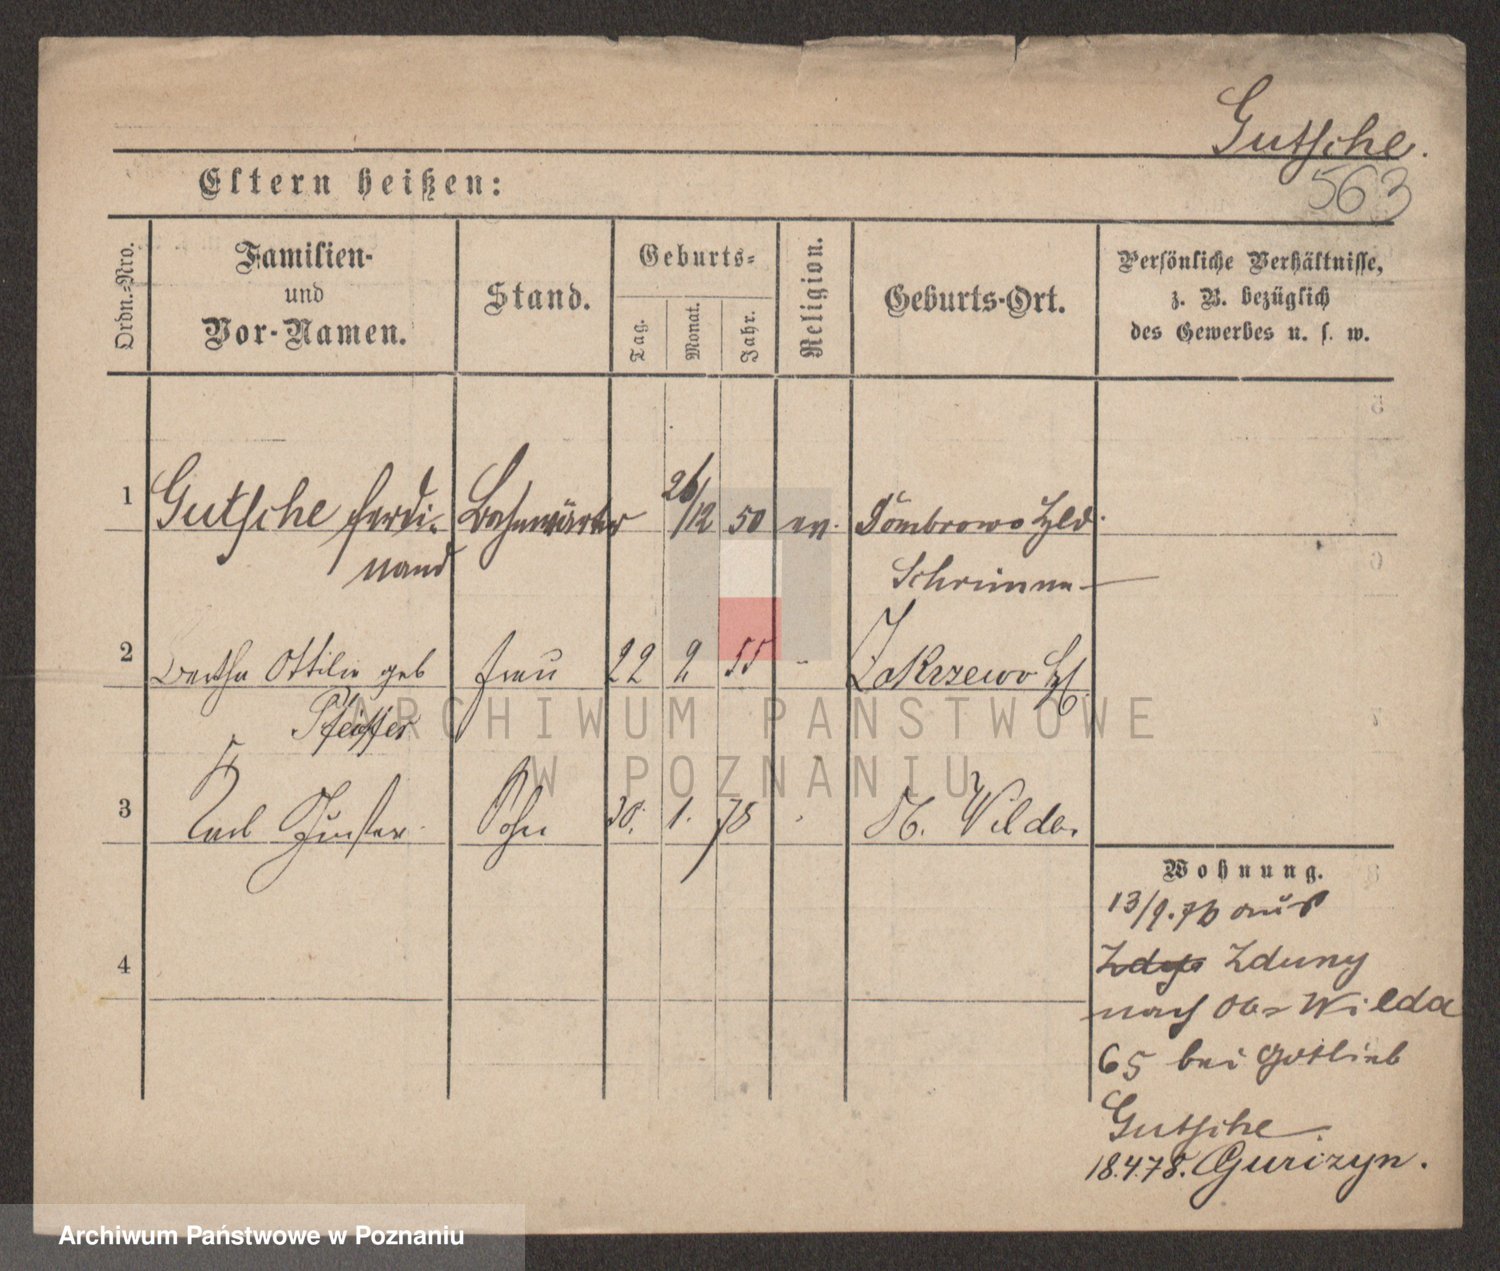 Gutsche.
563
Eltern heißen:
Ordn.-Nro.
Familien-
und
Vor-Namen.
Stand.
Geburts-
Tag.
Monat.
Jahr.
Religion.
Geburts-Ort.
Persönliche Verhältnisse,
z. B. bezüglich
des Gewerbes u. s. w.
1 Gutsche Ferdi- Bahnwärter 26/12 50 ev. Dombrowo
nand Schrimm
2 Bertha Ottilie geb Frau 22 2 55 - Zakrzewo
Pfeiffer
3 Karl Gustav Sohn 30. 1. 78 N. Wilda.
4
Wohnung.
13/9.76 aus
Zduny
nach Ober Wilda
65 bei Gottlieb
Gutsche.
18.4.78. Gurczyn.
ARCHIWUM PAŃSTWOWE
W POZNANIU
Archiwum Państwowe w Poznaniu